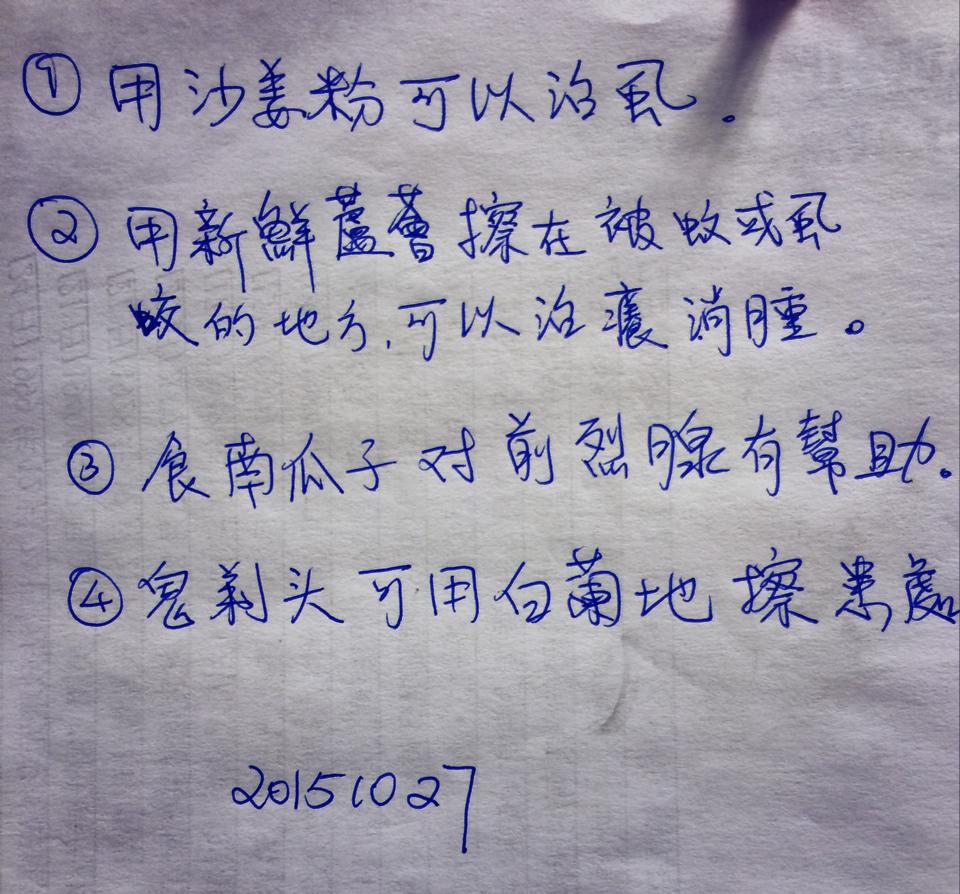 ① 用沙姜粉可以治虱。
② 用新鮮蘆薈擦在被蚊或虱
咬的地方,可以治癢消腫。
③ 食南瓜子对前烈腺有幫助.
④ 鬼剃头可用白蘭地擦患處
20151027